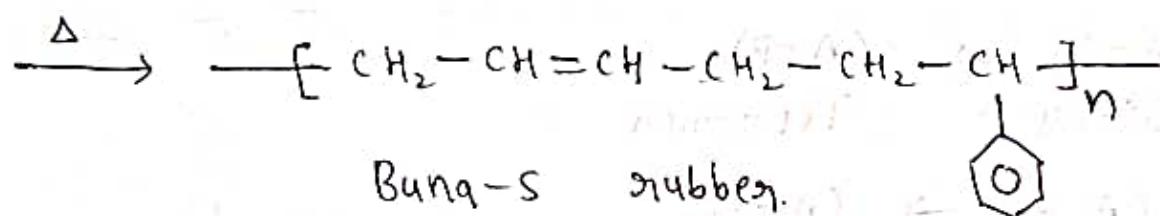 Δ
⟶ —[ CH₂ – CH = CH – CH₂ – CH₂ – CH ]ₙ—
Buna-S rubber.